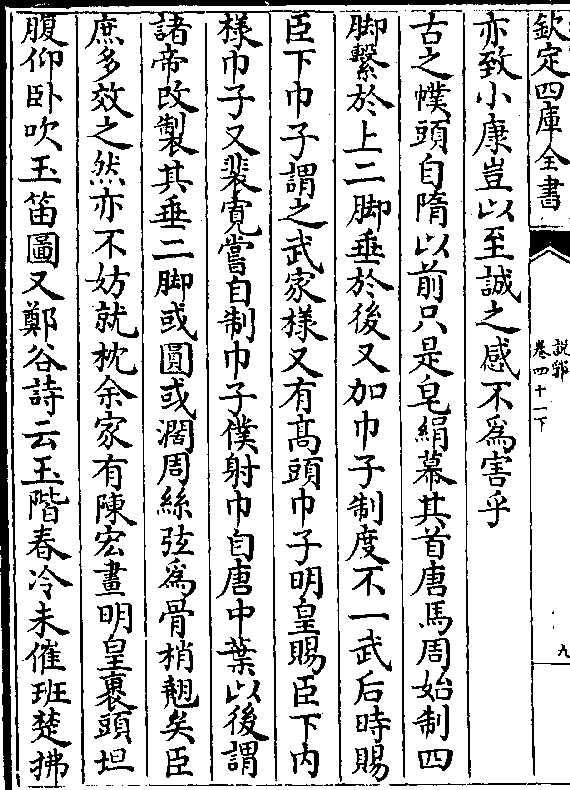 欽定四庫全書
說郛
卷四十一下
九
亦致小康豈以至誠之感不為害乎
古之幞頭自隋以前只是皂絹幕其首唐馬周始制四
脚繫於上二脚垂於後又加巾子制度不一武后時賜
臣下巾子謂之武家樣又有髙頭巾子明皇賜臣下内
樣巾子又裴寛嘗自制巾子僕射巾自唐中葉以後謂
諸帝改製其垂二脚或圓或濶周絲弦為骨梢翹矣臣
庶多效之然亦不妨就枕余家有陳宏畫明皇裹頭坦
腹仰卧吹玉笛圖又鄭谷詩云玉階春冷未催班楚拂